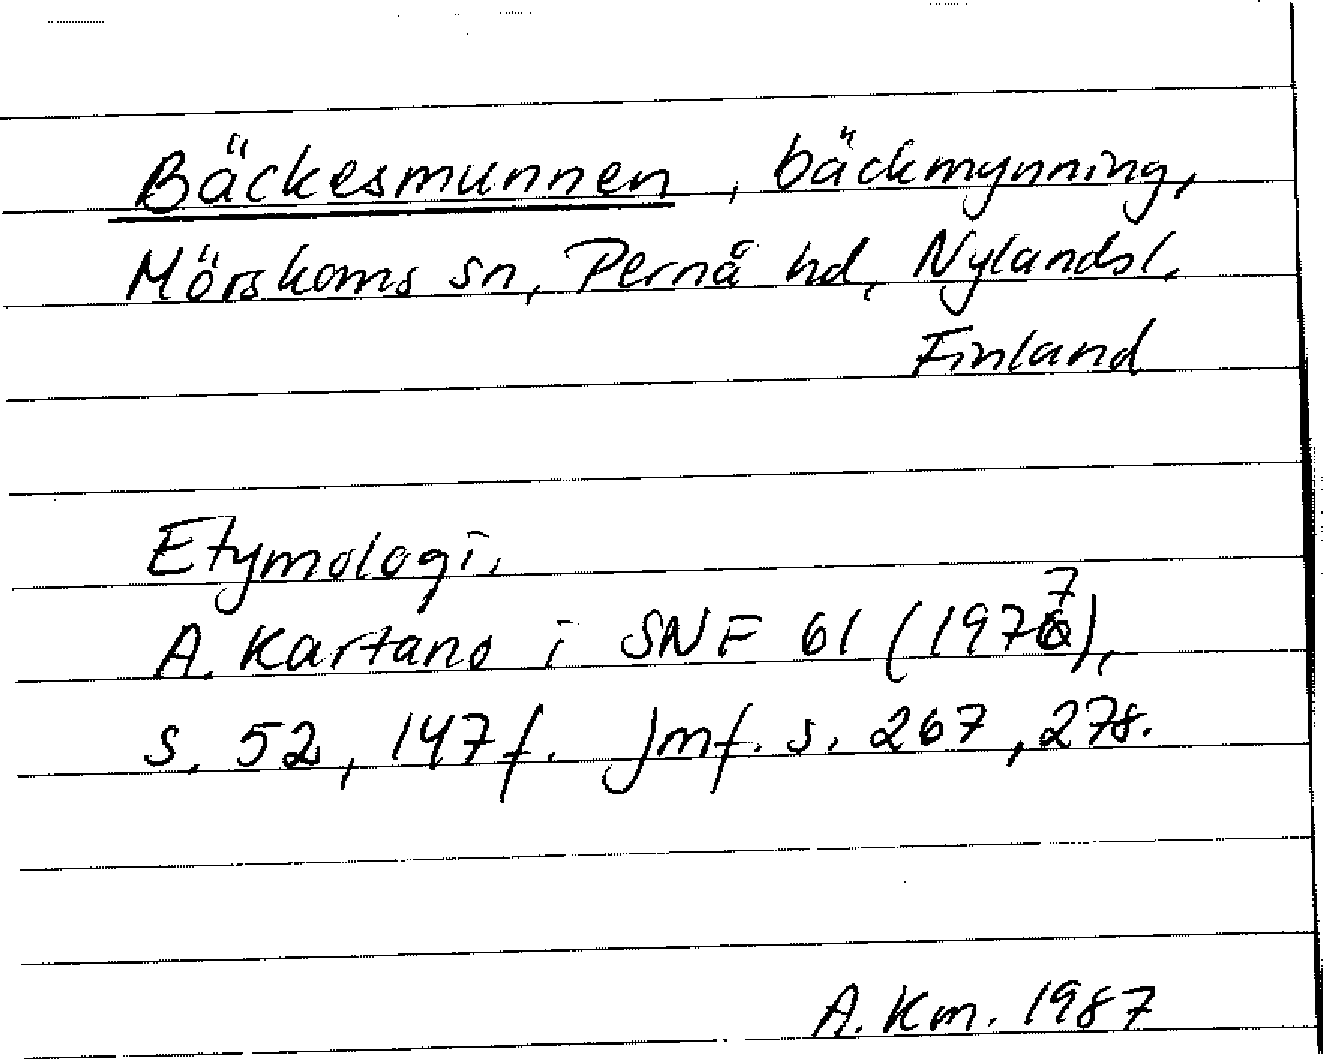 Bäckesmunnen, bäckmynning,
Mörskoms sn, Pernå hd, Nylandsl.
Finland
Etymologi.
A. Kartano i SNF 61 (1977),
s. 52, 147 f. Jmf. s. 267, 278.
A. Km. 1987